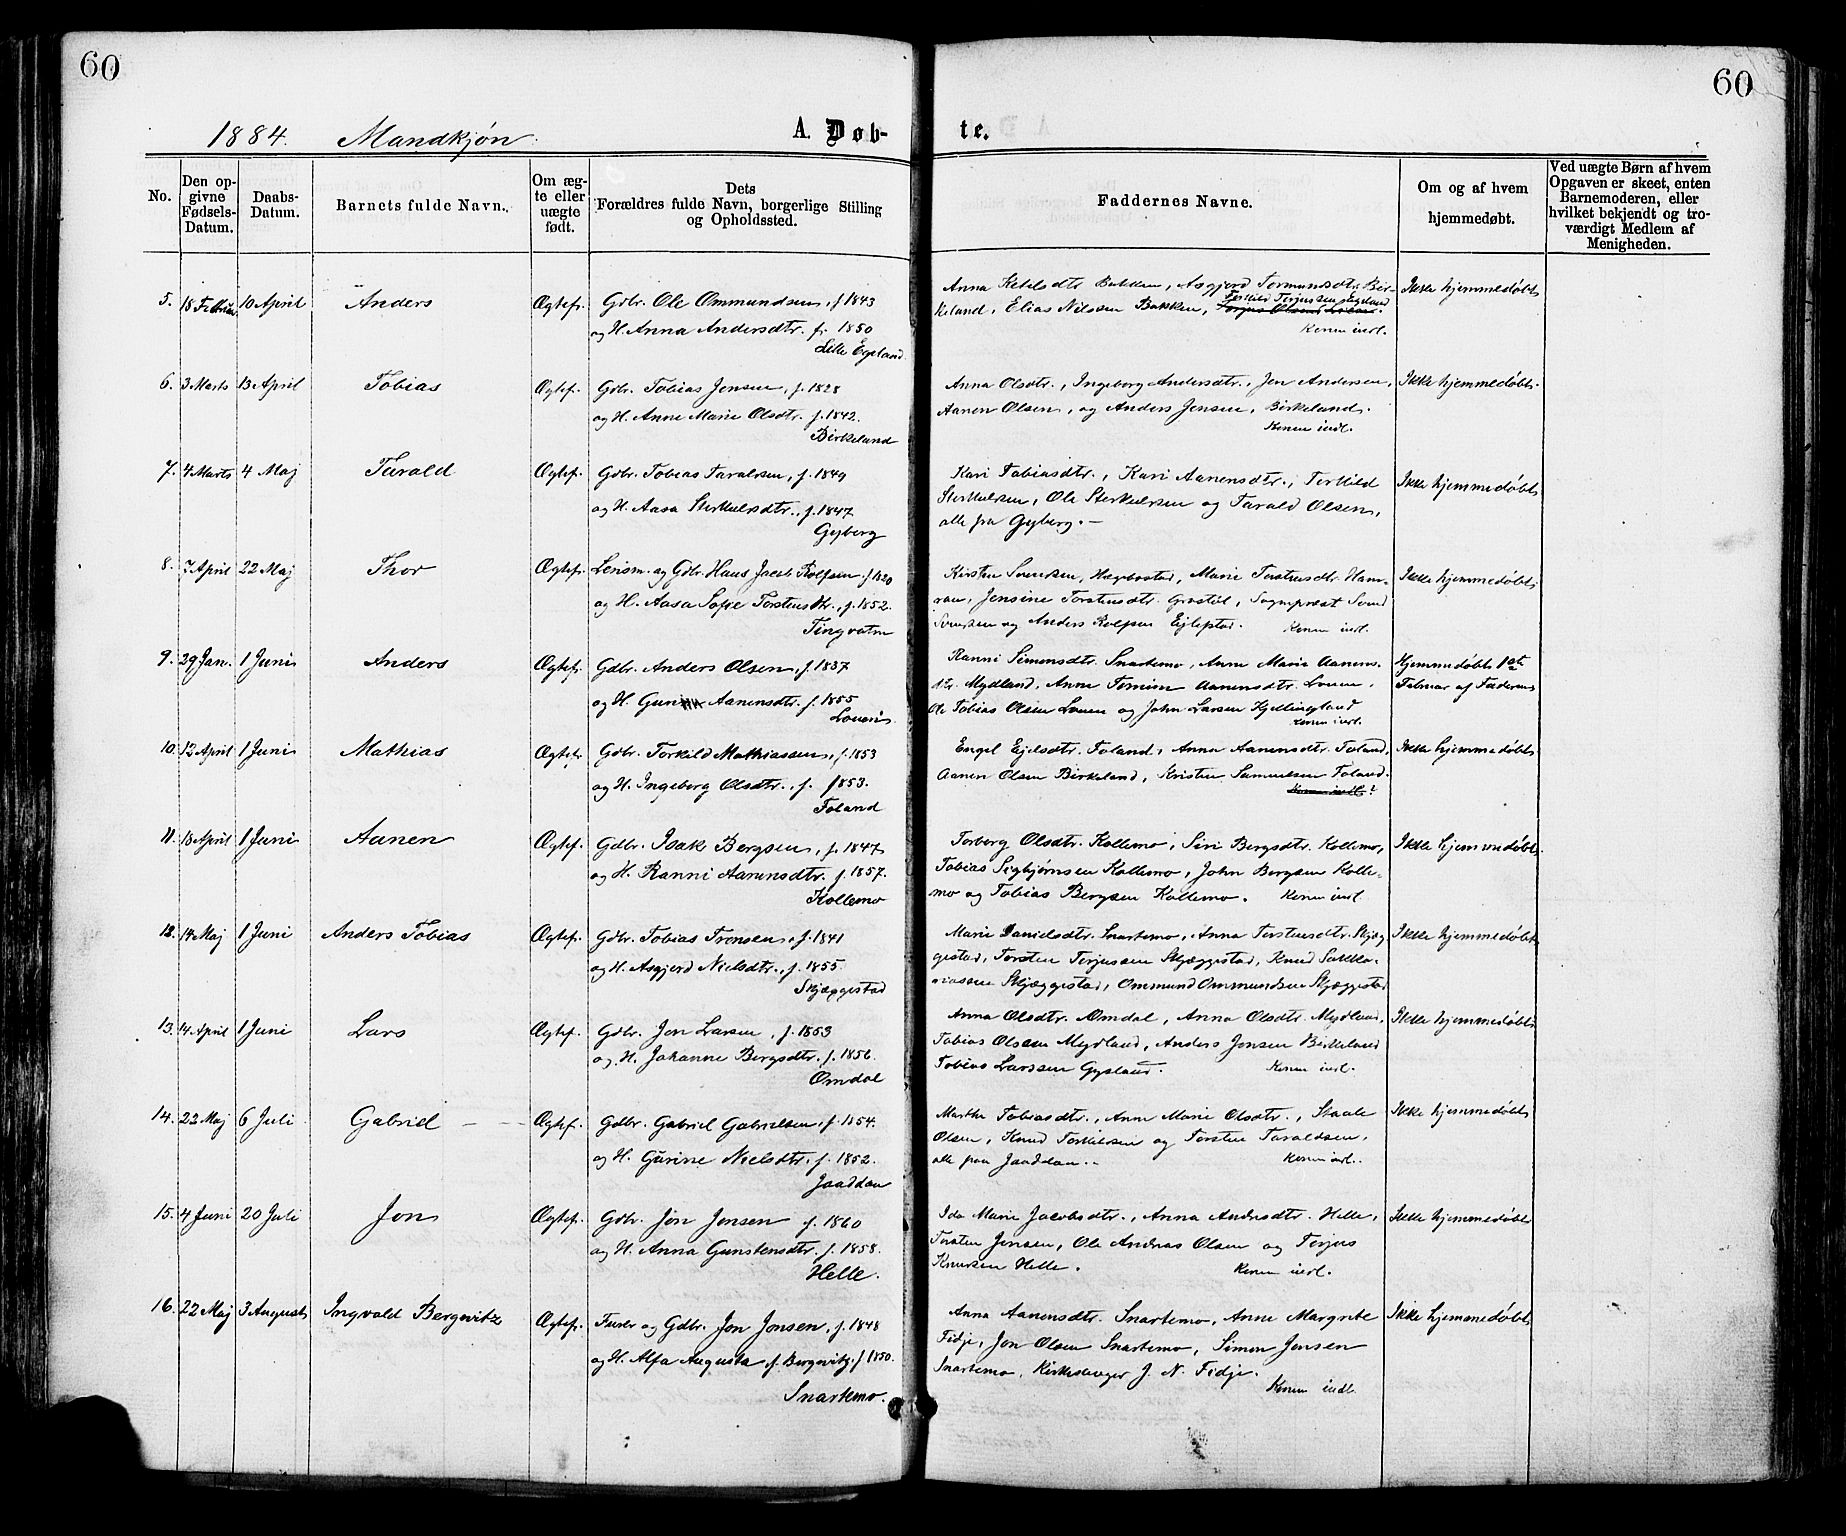 60
60
1884. Mandkjøn.
A. Døb-
te.
No.
Den op-
givne
Fødsels-
Datum.
Daabs-
Datum.
Barnets fulde Navn.
Om æg-
te eller
uægte
født.
Dets
Forældres fulde Navn, borgerlige Stilling
og Opholdssted.
Faddernes Navne.
Om og af hvem
hjemmedøbt.
Ved uægte Børn af hvem
Opgaven er skeet, enten
Barnemoderen, eller
hvilket bekjendt og tro-
værdigt Medlem af
Menigheden.
5. 18 Februar 10 April Anders Ægtef. Gdbr. Ole Ommundsen, f. 1843
og H. Anna Andersdtr. f. 1850
Lille Egeland.
Anna Ketilsdtr Bakken, Asgjerd Tormundsdtr. Bir-
keland, Elias Nilsen Bakken, Terkild Terjussen Egeland
Konen indl.
Ikke hjemmedøbt
6. 3 Marts 13 April Tobias Ægtef. Gdbr. Tobias Jensen, f. 1828
og H. Anne Marie Olsdtr. f. 1842.
Birkeland
Anna Olsdtr., Ingeborg Andersdtr., Jon Andersen,
Aanen Olsen, og Anders Jensen, Birkeland.
Konen indl.
Ikke hjemmedøbt.
7. 4 Marts 4 Maj Tarald Ægtef. Gdbr. Tobias Taraldsen, f. 1849
og H. Aasa Sterkulsdtr., f. 1847
Gyberg
Kari Tobiasdtr., Kari Aanensdtr., Terkild
Sterkulsen, Ole Sterkulsen og Tarald Olsen,
alle fra Gyberg. —
Ikke hjemmedøbt
8. 7 April 22 Maj Thor Ægtef. Lensm. og Gdbr. Hans Jacob Rolfsen f 1820
og H. Aasa Sofie Torstensdtr., f. 1852.
Tingvatn
Kirsten Svendsen, Hægebostad, Marie Torstensdtr. Ham-
ran, Jensine Torstensdtr. , Sognepræst Svend
Svendsen og Anders Rolfsen Ejlepstad. Konen indl.
Ikke hjemmedøbt
9. 29 Jan. 1 Juni Anders Ægtef. Gdbr. Anders Olsen, f. 1837
og H. Aanensdtr. f. 1855
Louen.
Ranni Simensdtr. Snartemo, Anne Marie Aanens-
dtr. Mydland, Anne Aanensdtr. Louen,
Ole Tobias Olsen Louen og John Larsen Kjellingland
Konen indl.
Hjemmedøbt 1ste
Februar af Faderen
10. 12 April 1 Juni Mathias Ægtef. Gdbr. Torkild Mathiassen, f. 1853
og H. Ingeborg Olsdtr., f. 1853.
Foland
Engel Ejelsdtr. Foland, Anna Aanensdtr. Foland,
Aanen Olsen Birkeland, Kristen Samuelsen Foland.
Konen indl.
Ikke hjemmedøbt
11. 18 April 1 Juni Aanen Ægtef. Gdbr. Isak Bergsen, f. 1847
og H. Ranni Aanensdtr. f. 1857.
Kollemo
Torborg Olsdtr. Kollemo, Siri Bergsdtr. Kollemo,
Tobias Sigbjørnsen Kollemo, John Bergsen Kolle-
mo og Tobias Bergsen Kollemo. Konen indl.
Ikke hjemmedøbt.
12. 14 Maj 1 Juni Anders Tobias Ægtef. Gdbr. Tobias Tronsen, f. 1841
og H. Asgjerd Nielsdtr., f. 1855.
Skjæggestad
Marie Danielsdtr. Snartemo, Anna Torstensdtr. Skjæg-
gestad, Torsten Terjussen Skjæggestad, Knud Sakka-
riassen Skjæggestad, Ommund Ommundsen Skjæggestad
Ikke hjemmedøbt
13. 14 April 1 Juni Lars Ægtef. Gdbr. Jon Larsen, f. 1853
og H. Johanne Bergsdtr. f. 1856.
Omdal
Anna Olsdtr. Omdal, Anna Olsdtr. Mydland,
Tobias Olsen Mydland, Anders Jensen Birkeland
Tobias Larssen Gysland. Konen indl.
Ikke hjemmedøbt
14. 22 Maj 6 Juli Gabriel Ægtef. Gdbr. Gabriel Gabrielsen, f. 1854.
og H. Gurine Nielsdtr. f. 1852.
Jaaddan
Martha Tobiasdtr., Anne Marie Olsdtr., Staale
Olsen, Knud Torkildsen og Torsten Taraldsen,
alle paa Jaaddan. Konen indl.
Ikke hjemmedøbt
15. 4 Juni 20 Juli Jon Ægtef. Gdbr. Jon Jensen f. 1860
og H. Anna Gunstensdtr. f. 1858.
Helle.
Ida Marie Jacobsdtr., Anna Andersdtr. Helle,
Torsten Jensen, Ole Andreas Olsen og Terjus
Knudsen Helle. Konen indl.
Ikke hjemmedøbt
16. 22 Maj 3 August Ingvald Bergwitz Ægtef. Furer og Gdbr. Jon Jonsen, f. 1848
og H. Alfa Augusta f. Bergwitz, f 1850.
Snartemo.
Anna Aanensdtr. Snartemo, Anne Margrete
Fidje, Jon Olsen Snartemo, Simon Jensen
Snartemo, Kirkesanger J. N. Fidje.
Konen indl.
Ikke hjemmedøbt